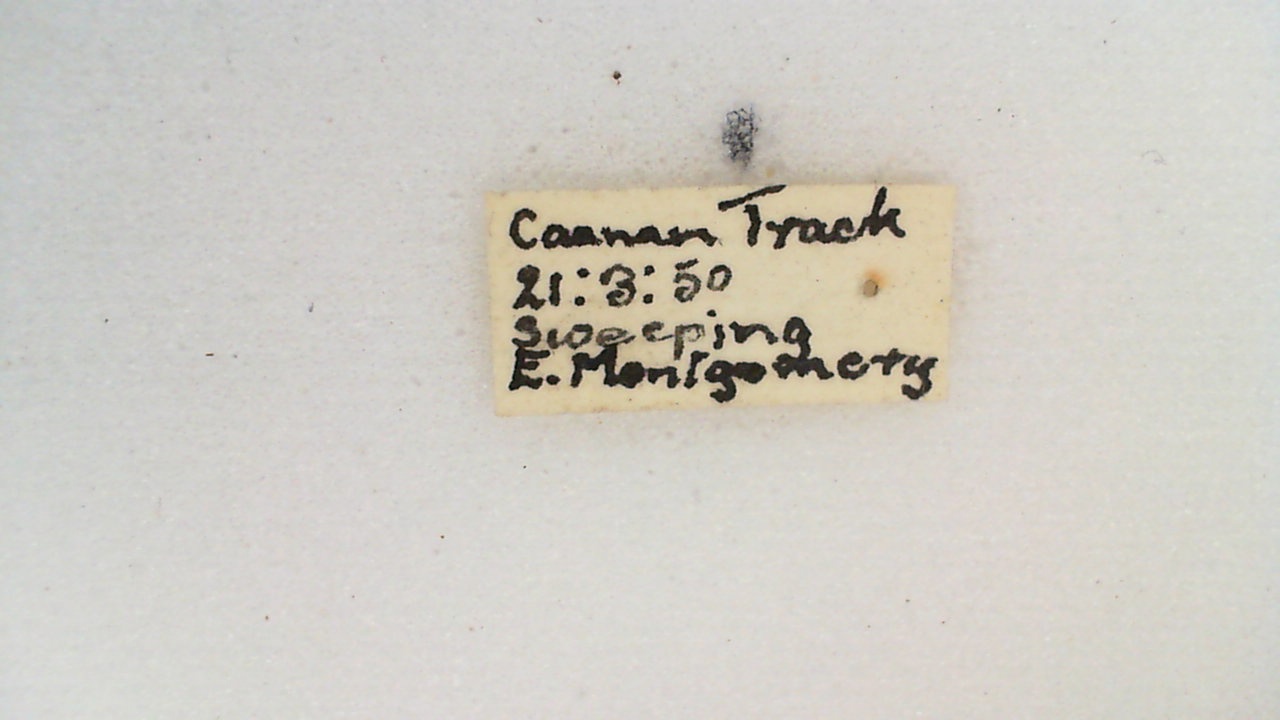 Caanan Track
21:3:50
Sweeping
E. Montgomery